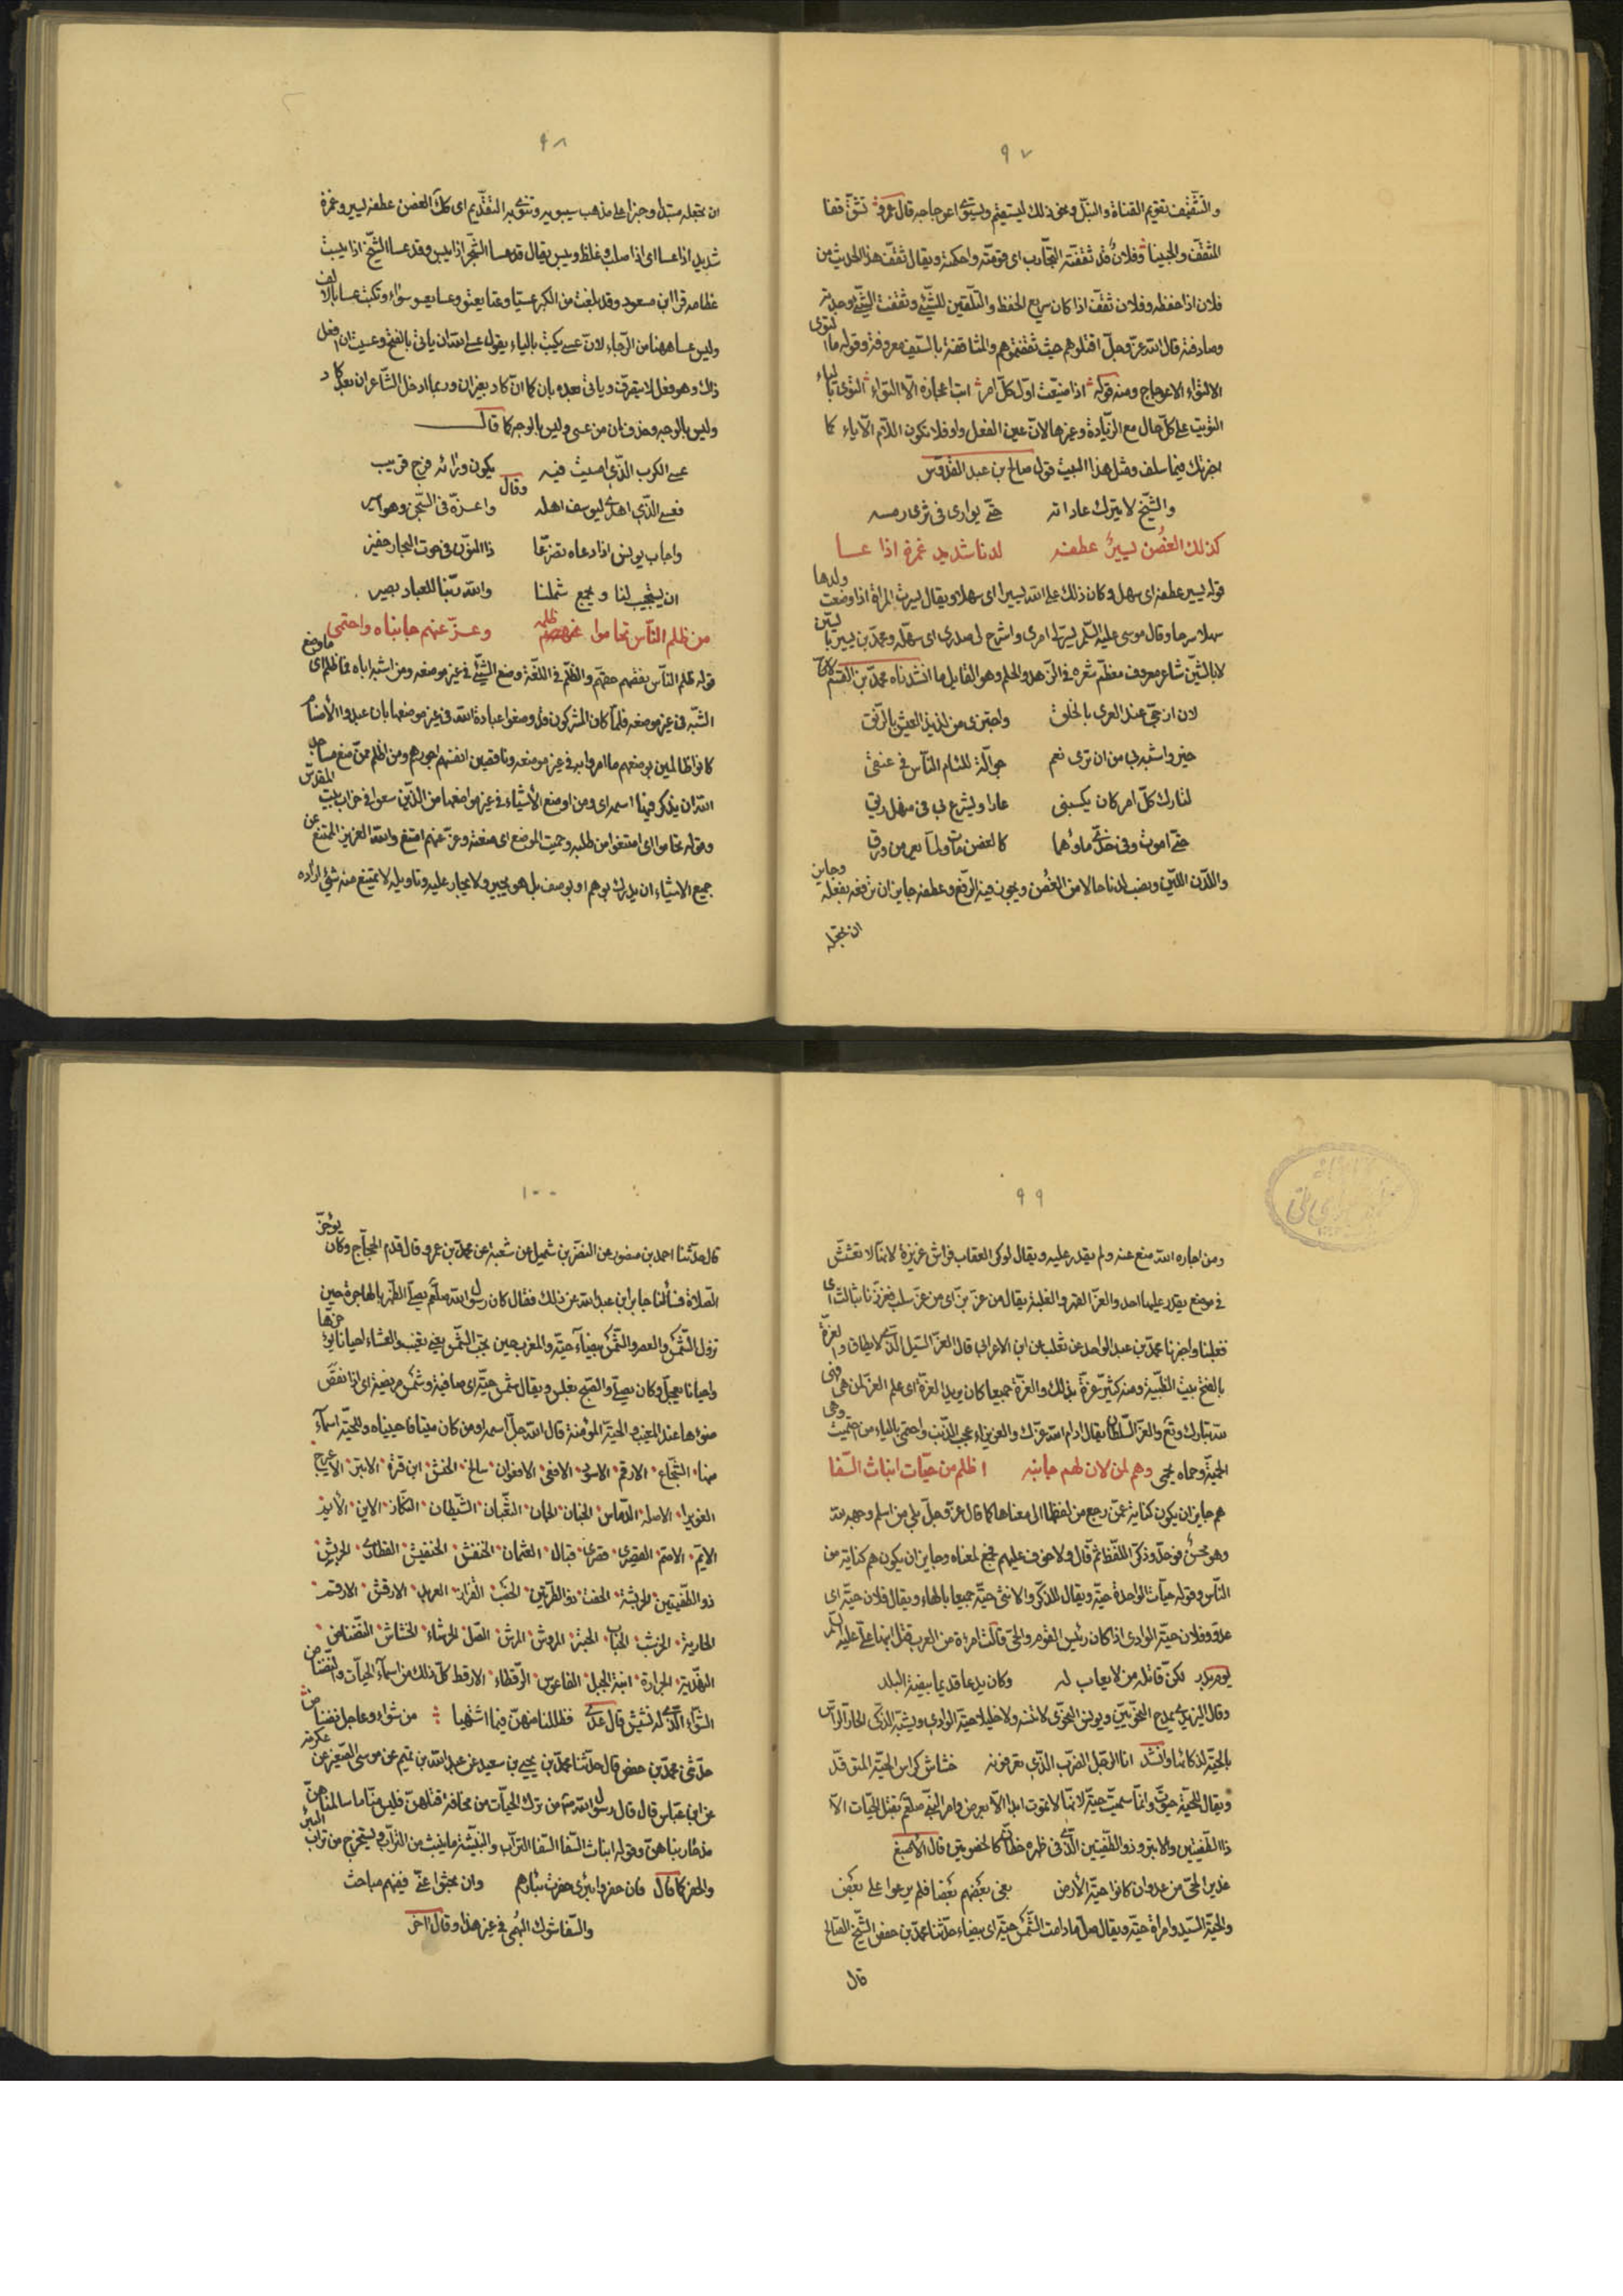 ٩٧
والتثقيف تقويم القناة والنبل ونحو ذلك ليستقيم ويستوى اعوجاجه قال عمرو تشق قفا
المثقف والجبينا وفلان قد ثقفته التجارب اى قومته واحكمته ويقال ثقف هذا الحديث من
فلان اذا حفظه وفلان ثقف اذا كان سريع الحفظ والتلقين للشئ وثقفت الشئ وجدته
وصادفته قال الله عز وجل اقتلوهم حيث ثقفتموهم والمثاقفة بالسيف معروفة وقوله ما التوى
الالتواء الاعوجاج ومنه قوله اذا ضيعت اول كل امر ابت اعجازه الا التواء التوى بالياء
التويت على كل حال مع الزيادة وغيرها لان عين الفعل واو فلا تكون اللام الا ياء كما
اخبرتك فيما سلف ومثل هذا البيت قول صالح بن عبد القدوس
والشيخ لا يترك عاداته حتى يوارى فى ثرى رمسه
كذلك الغصن يسير عطفه لدنا شديد غمزه اذا عسا
قوله يسير عطفه اى سهل وكان ذلك على الله يسيرا اى سهلا ويقال يسرت المراة اذا وضعت ولدها
سهلا سرحا وقال موسى عليه السلم يسر لى امرى واشرح لى صدرى اى سهله ومحمد بن يسير بالسين
لا بالشين شاعر معروف معظم شعره فى الزهد والحلم وهو القايل ما انشدناه محمد بن القسم
لان ازجى عند العرى بالخلق واجتزى من لذيذ العيش بالرنق
خير واشبه بى من ان ترى نعم جوالة للئام الناس فى عنقى
لتارك كل امر كان يكسبنى عارا ويشرع بى فى منهل رنق
حتى اموت وفى خدى ماؤهما كالغصن مات ولما يعر من ورق
واللدن اللين ونصب لدنا حالا من الغصن ويجوز فيه الرفع وعطفه جايز ان ترفعه بفعله وجايز
ان تجعله
٩٨
ان تجعله مبتدا وخبرا على مذهب سيبويه وتنوى به التقديم اى كذلك الغصن عطفه يسير وغمزه
شديد اذا عسا اى اذا صلب وغلظ ويبس يقال قد عسا الشجر اذا يبس وقد عسا الشيخ اذا يبست
عظامه قرا ابن مسعود وقد بلغت من الكبر عسيا وعتا يعتو وعسا يعسو سواء وتكتب عسا بالالف
وليس عسا ههنا من الرجاء لان عسى يكتب بالياء يقول عسى الله ان ياتى بالفتح وعسيت ان افعل
ذلك وهو فعل لا يتصرف وياتى بعده بان كما ان كاد بغير ان وربما ادخل الشاعر ان بعد كاد
وليس بالوجه وحذف ان من عسى وليس بالوجه كما قال
عسى الكرب الذى امسيت فيه يكون وراءه فرج قريب
وقال
فعسى الذى اهدى ليوسف اهله واعزه فى السجن وهو اسير
واجاب يونس اذ دعاه تضرعا ذا النون فى حوت البحار خفير
ان يستجيب لنا و يجمع شملنا والله ربنا للعباد بصير
من ظلم الناس تحاموا ظلمه وعز عنهم جانباه واحتمى
قوله ظلم الناس نقصهم حقهم والظلم فى اللغة وضع الشئ فى غير موضعه ومن اشبه اباه فما ظلم اى ما وضع
الشبه فى غير موضعه فلما كان المشركون قد وضعوا عبادة الله فى غير موضعها بان عبدوا الاصنام
كانوا ظالمين بوضعهم ما امروا به فى غير موضعه وناقصين انفسهم اجورهم ومن اظلم ممن منع مساجد
الله ان يذكر فيها اسمه اى ومن اوضع الاشياء فى غير مواضعها من الذين سعوا فى خراب بيت المقدس
وقوله تحاموا اى امتنعوا من طلبه وحميت الموضع اى منعته وعز عنهم امتنع والله العزيز الممتنع عن
جميع الاشياء ان يدرك بوهم او يوصف بل هو يجير ولا يجار عليه وتاويله لا يمتنع منه شئ اراده
٩٩
ومن اجاره الله منع عنه ولم يقدر عليه ويقال لوكر العقاب فراش عزيزة لانها لا تعشش
فى موضع يقدر عليها احد والعز القهر والغلبة يقال من عز بز اى من غلب سلب فعززنا بثالث اى
فغلبنا واخبرنا محمد بن عبد الواحد عن ثعلب عن ابن الاعرابى قال العز السيل الذى لا يطاق والعزة
بالفتح بنت الظبية ومنه كثير عزة بذلك والعزة جميعا كان يريد العزة اى علم العز لمن هى فهى
لله تبارك وتع والعز السلطان يقال ادام الله عزك والعزيزاء عجب الذنب واحتمى بالياء من احتميت وهى
الحمية وحماه يحمى وهم لمن لان لهم جانبه اظلم من حيات انباث السفا
هم جايز ان يكون كناية عمن رجع من لفظها الى معناها كما قال عز وجل بلى من اسلم وجهه لله
وهو محسن فوحد وذكر اللفظ ثم قال ولا خوف عليهم فجمع لمعناه وجايز ان يكون هم كناية من
الناس وقوله حيات الواحدة حية ويقال للذكر والانثى حية جميعا بالهاء ويقال فلان حية اى
عدو وفلان حية الوادى اذا كان رئيس القوم والحى قالت امراة من العرب
لكن قاتله من لا يعاب له وكان يدعا قديما بيضة البلد
وقال اليزيدى يمدح النحويين ويونس النحوى لا تنسه ولا خليلا حية الوادى ويشبه الذكى الحار الراس
بالحية لذكائها وانشد انا الرجل الضرب الذى تعرفونه خشاش كراس الحية المتوقد
ويقال للحية حيوت وانما سميت حية لانها لا تموت ابدا الا بعرض وامر النبى صلعم بقتل الحيات الا
ذا الطفيتين والابتر وذو الطفيتين الذى فى ظهره خطان كالخوصتين قال ذو الاصبع
عذير الحى من عدوان كانوا حية الارض بغى بعضهم بعضا فلم يرعوا على بعض
والحية السيد وامراة حية ويقال صل ما دامت الشمس حية اى بيضاء حدثنا محمد بن حفص الشيخ الصالح
قال
١٠٠
قال حدثنا احمد بن منصور عن النضر بن شميل عن شعبة عن محمد بن عمرو قال قدم الحجاج وكان يؤخر
الصلاة فسألنا جابر ابن عبد الله عن ذلك فقال كان رسول الله صلعم يصلى الظهر بالهاجرة حين
تزول الشمس والعصر والشمس بيضاء حية والمغرب حين تجب الشمس يعنى تغيب والعشاء احيانا يؤخرها
واحيانا يعجل وكان يصلى الصبح بغلس ويقال شمس حية اى صافية وشمس مريضة اى اذا نقص
ضوءها عند المغيب والحية المؤمنة قال الله جل اسمه اومن كان ميتا فاحييناه وللحية اسماء
منها الشجاع الارقم الاسود الافعى الافعوان سالخ الحنش ابن قترة الابتر الاعيرج
الاصلة الجنان الجان الثعبان الشيطان النكاز الاين
الايم العثمان الحنفش الحنفيش
ذو الطفيتين الحربشة الحفث ذو الطرتين القزاز العربد الارقش الارقم
الحارية الحباب المرش الصل الخرشاء الخشاش النضناض
الجرارة ابنة الجبل الفاعوس الرقطاء الارقط كل ذلك من اسماء الحيات والنضناض من
الشواء الذى له نشيش قال عدى فظللنا منهن فيما اشتهينا من شواء وعاجل نضناض
حدثنى محمد بن حفص قال حدثنا محمد بن يحيى بن سعيد عن عبد الله بن نمير عن موسى الصغير عن عكرمة
عن ابن عباس قال قال رسول الله صم من ترك الحيات من مخافة قتلهن فليس منا ما سالمناهن
منذ حاربناهن وقوله انباث السفا السفا التراب والنبيثة ما ينبث من التراب ويستخرج من تراب البئر
والحفر كما قال فان حفروا بئرى حفرت بئارهم وان بحثوا عنى ففيهم مباحث
والسفا شوك البهمى فى غير هذا وقال آخر